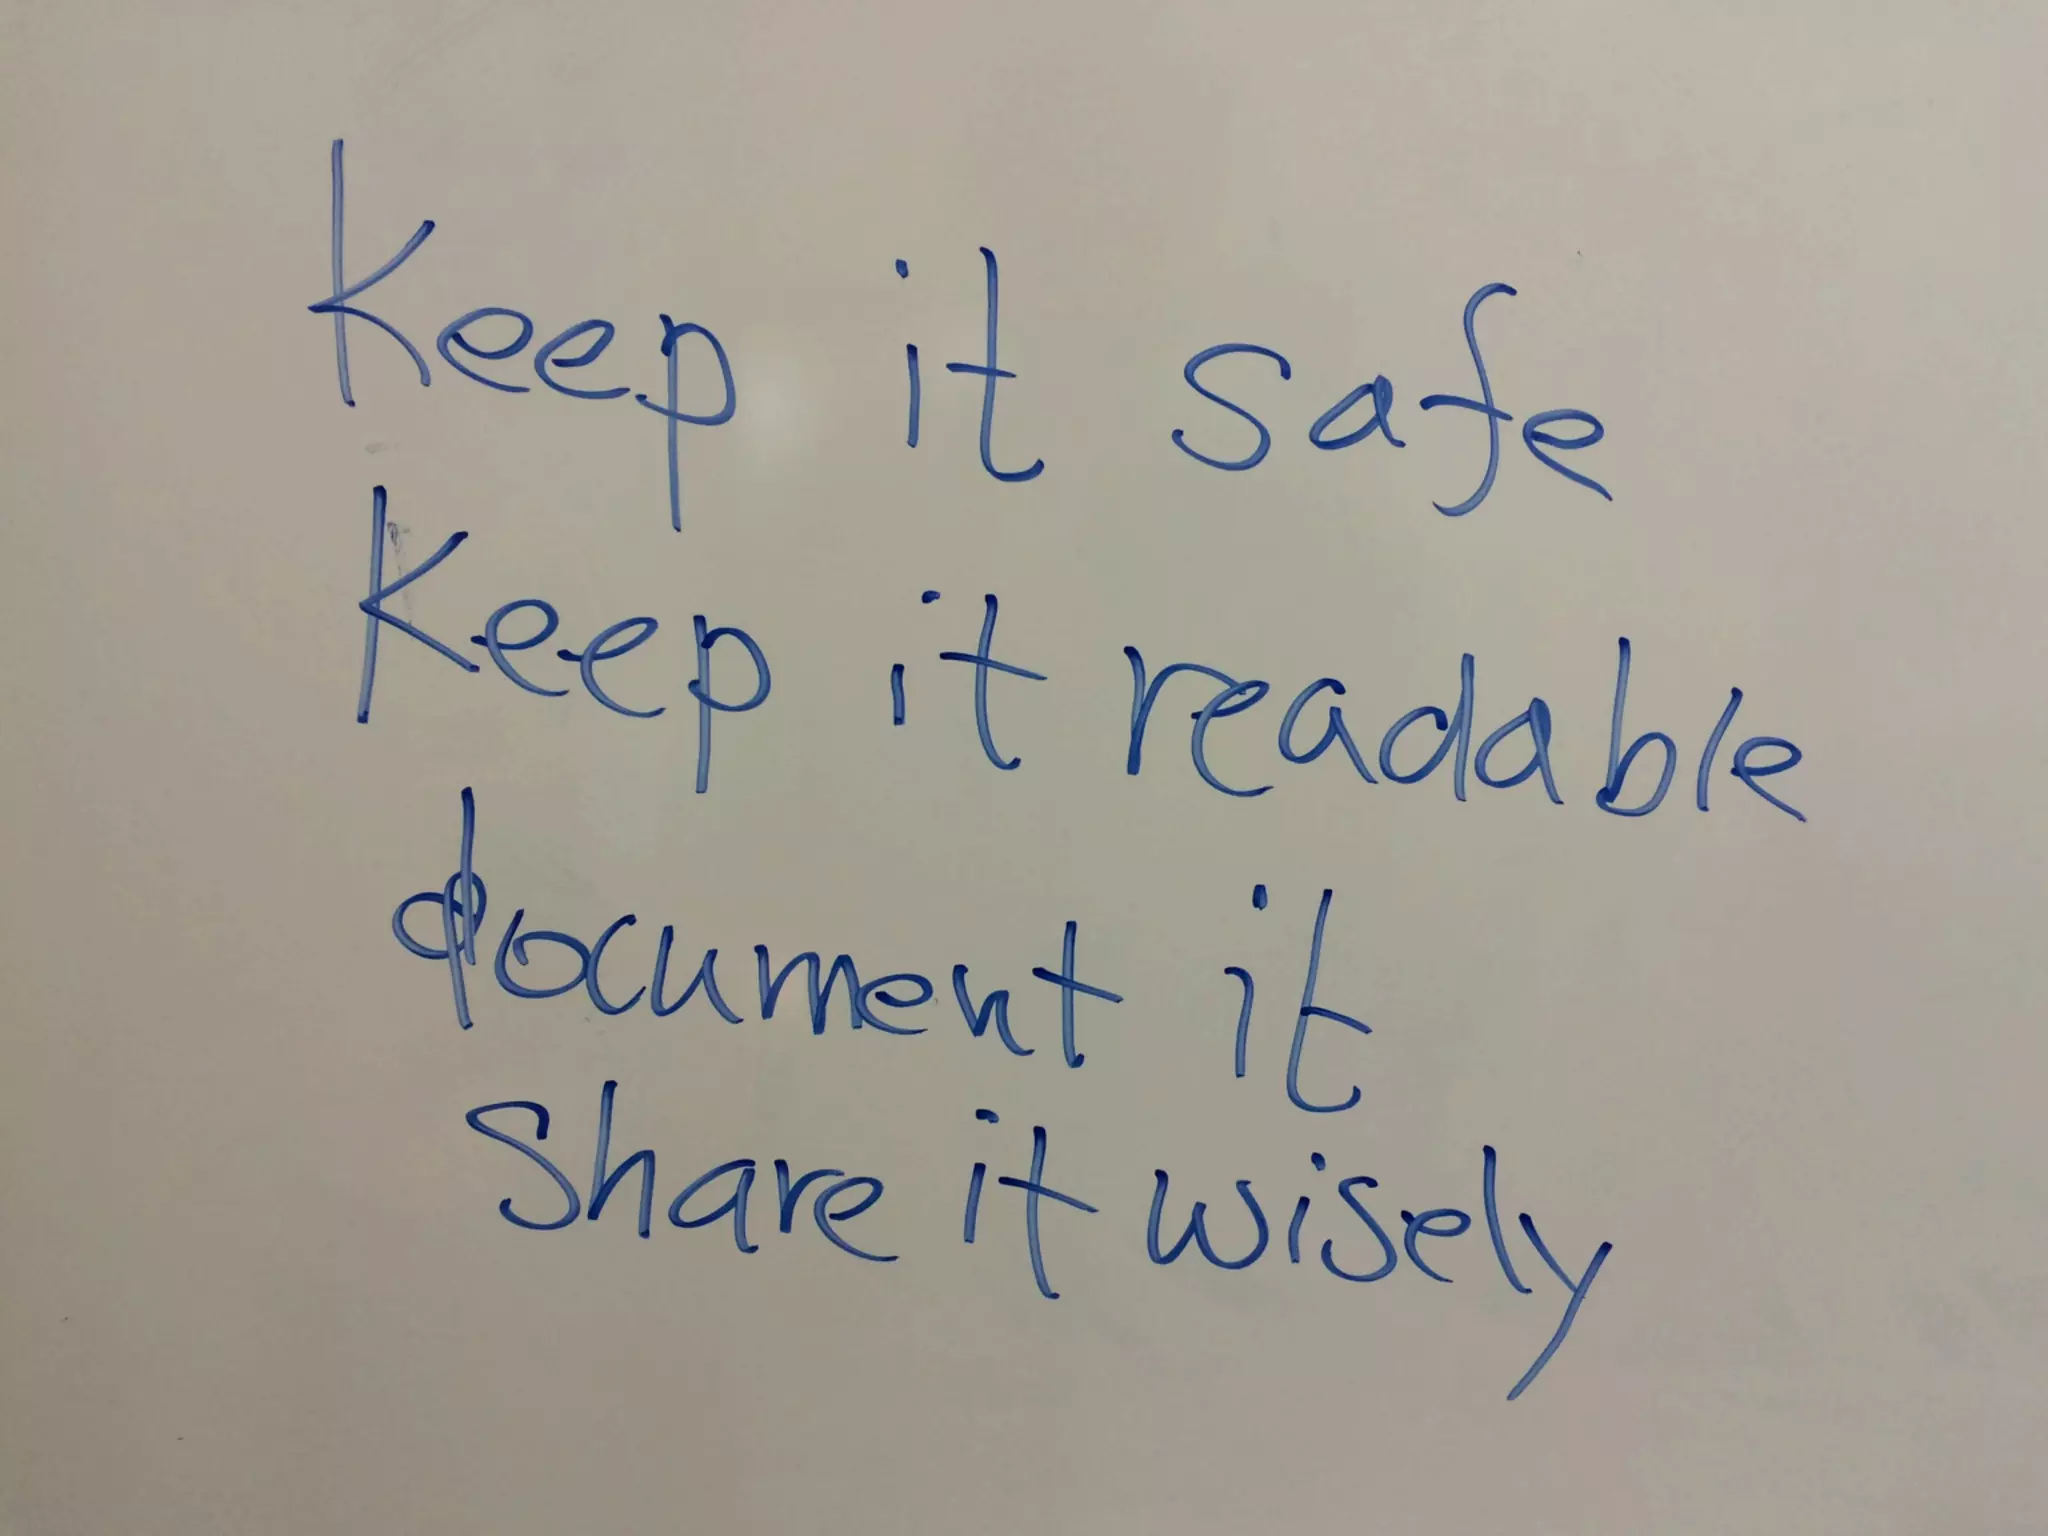 Keep it safe
Keep it readable
document it
Share it wisely